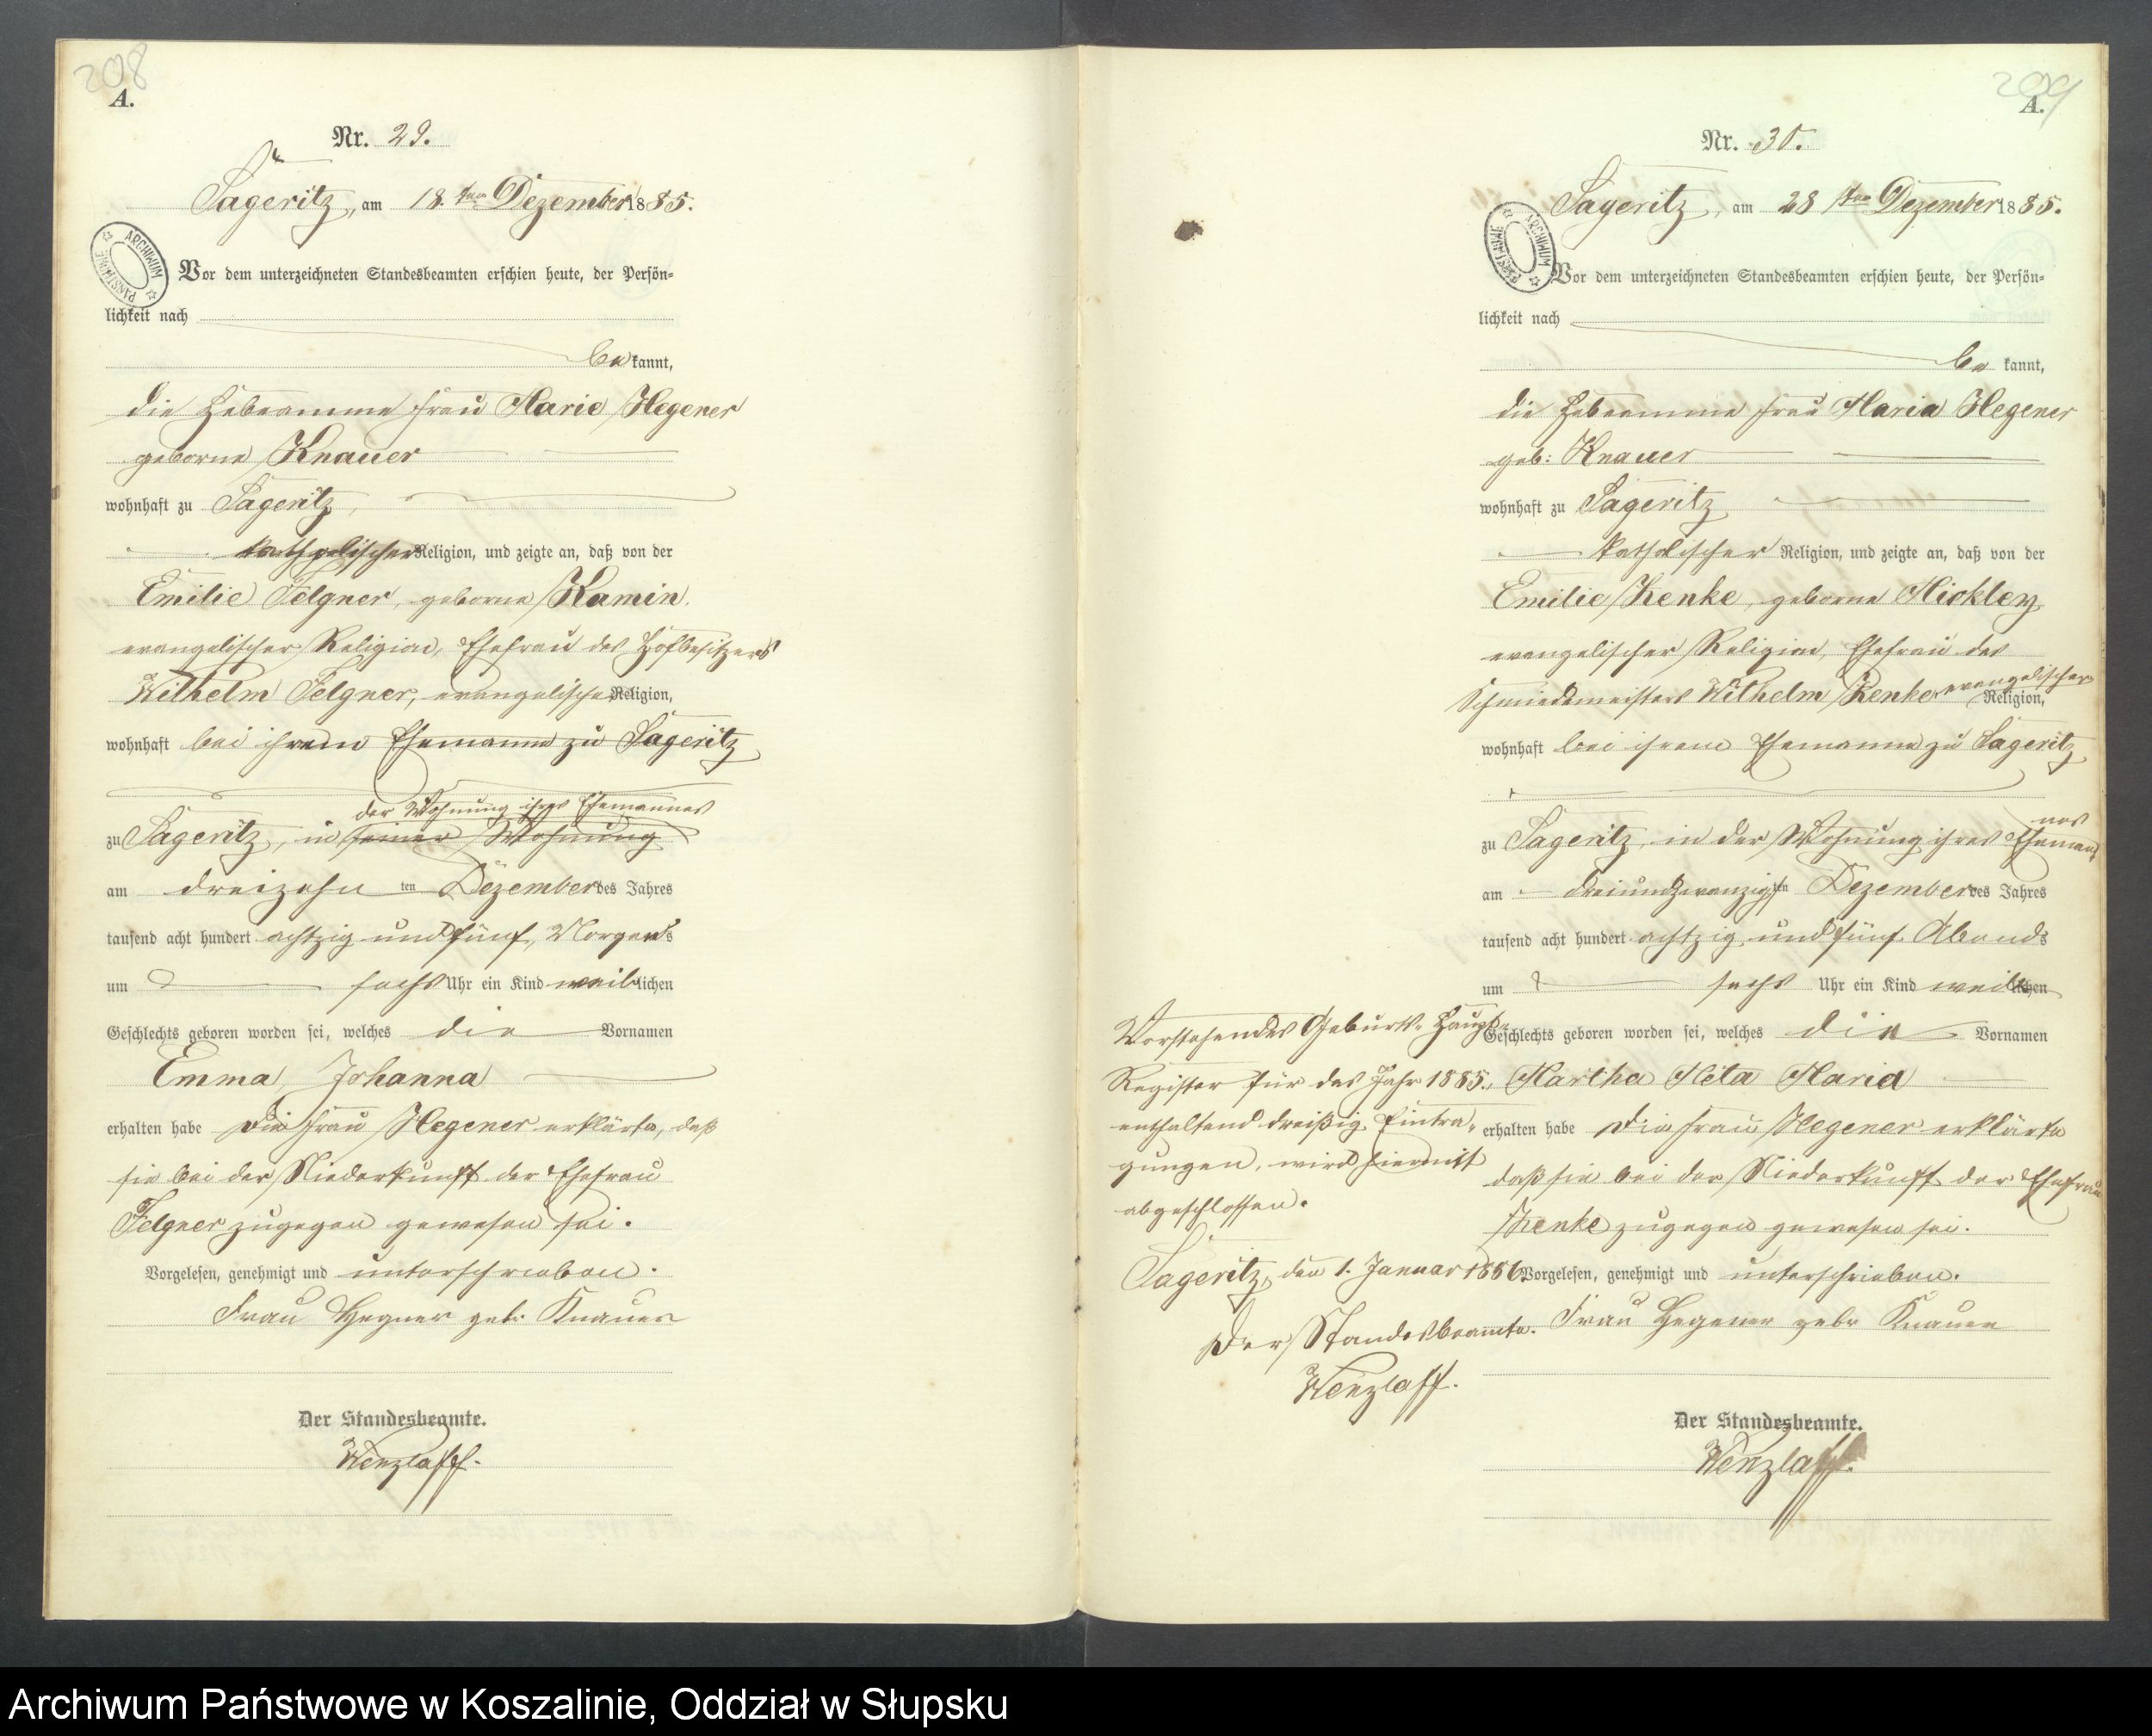 208
A.
Nr. 29.
Sageritz, am 18.ten Dezember 1885.
Vor dem unterzeichneten Standesbeamten erschien heute, der Persön-
lichkeit nach
bekannt,
die Hebeamme Frau Marie Hegener
geborne Knauer
wohnhaft zu Sageritz,
katholischer Religion, und zeigte an, daß von der
Emilie Felgner, geborne Kamin
evangelischer Religion, Ehefrau des Hofbesitzers
Wilhelm Felgner, evangelischer Religion,
wohnhaft bei ihrem Ehemanne zu Sageritz
der Wohnung ihres Ehemannes
zu Sageritz, in seiner Wohnung
am dreizehn ten Dezember des Jahres
tausend acht hundert achtzig und fünf, Morgens
um sechs Uhr ein Kind weiblichen
Geschlechts geboren worden sei, welches die Vornamen
Emma, Johanna
erhalten habe Die Frau Hegener erklärte, daß
sie bei der Niederkunft der Ehefrau
Felgner zugegen gewesen sei.
Vorgelesen, genehmigt und unterschrieben.
Frau Hegner geb: Knauer
Der Standesbeamte.
Wenzlaff.
209
A.
Nr. 30.
Sageritz, am 28 ten Dezember 1885.
Vor dem unterzeichneten Standesbeamten erschien heute, der Persön-
lichkeit nach
be kannt,
die Hebeamme Frau Maria Hegener
geb: Knauer
wohnhaft zu Sageritz
katholischer Religion, und zeigte an, daß von der
Emilie Renke, geborne Mickley
evangelischer Religion, Ehefrau des
Schmiedemeisters Wilhelm Renke evangelischer Religion,
wohnhaft bei ihrem Ehemanne zu Sageritz
zu Sageritz, in der Wohnung ihres Ehemannes
am dreiundzwanzigsten Dezember des Jahres
tausend acht hundert achtzig und fünf Abends
um sechs Uhr ein Kind weiblichen
Geschlechts geboren worden sei, welches die Vornamen
Martha Meta Maria
erhalten habe Die Frau Hegener erklärte
daß sie bei der Niederkunft der Ehefrau
Renke zugegen gewesen sei.
Vorgelesen, genehmigt und unterschrieben.
Frau Hegener geb: Knauer
Der Standesbeamte.
Wenzlaff.
Vorstehendes Geburts-Haupt-
Register für das Jahr 1885,
enthaltend dreißig Eintra-
gungen, wird hiermit
abgeschlossen.
Sageritz, den 1. Januar 1886.
Der Standesbeamte.
Wenzlaff.
ARCHIWUM PAŃSTWOWE
ARCHIWUM PAŃSTWOWE
Archiwum Państwowe w Koszalinie, Oddział w Słupsku